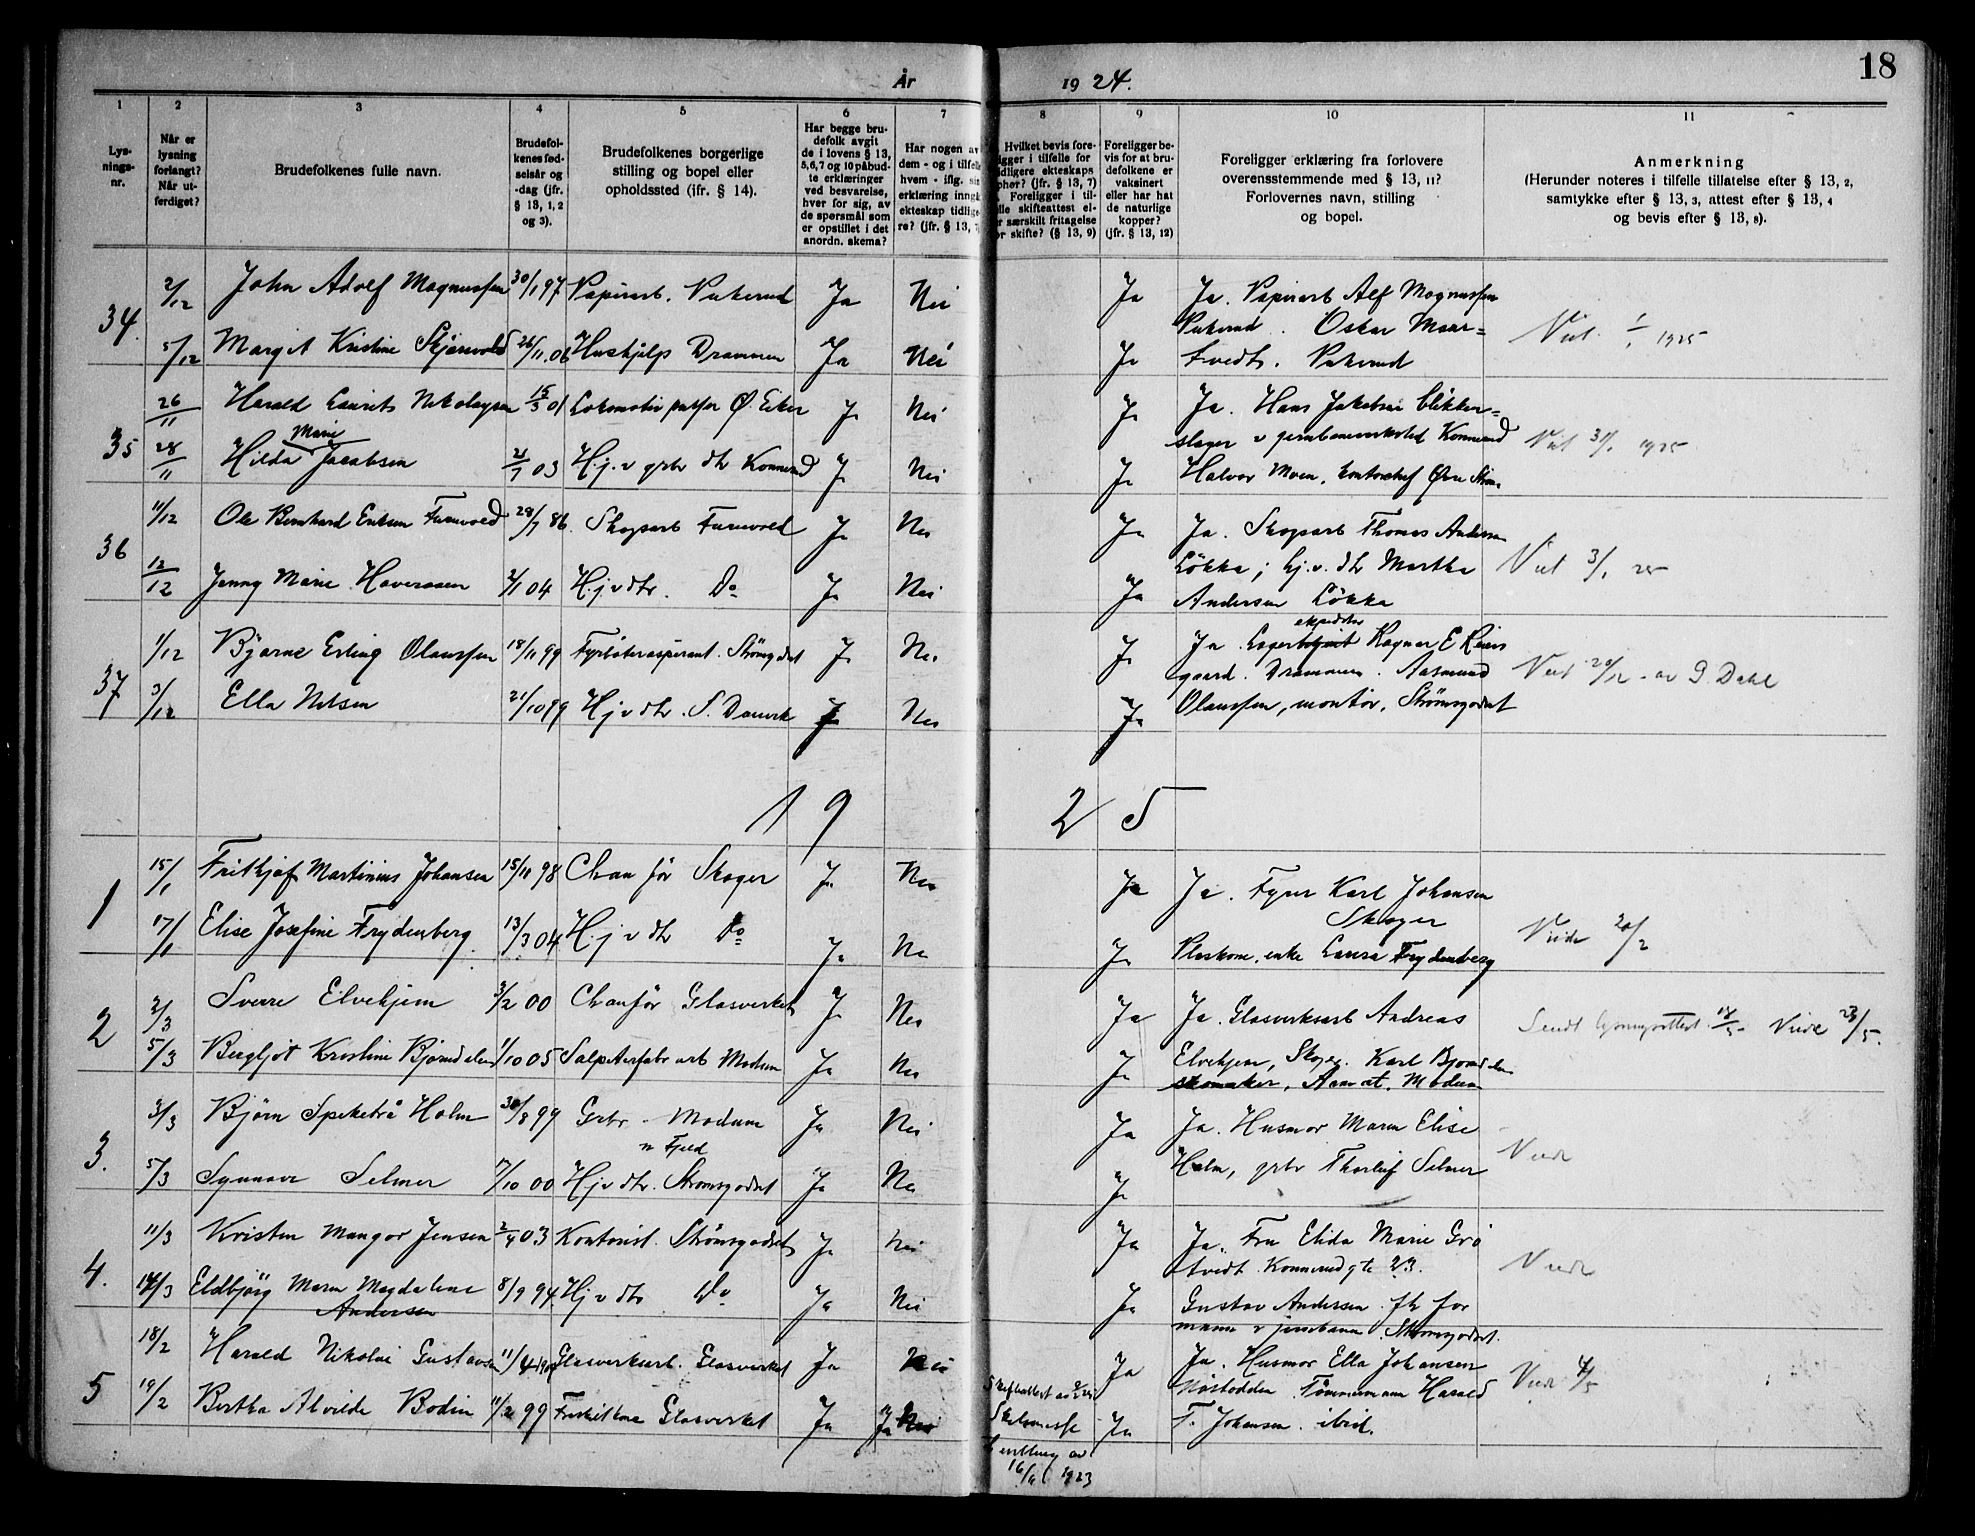 18
År 1924.
1 2 3 4 5 6 7 8 9 10 11
Lysnings-nr.
Når er lysning forlangt? Når utferdiget?
Brudefolkenes fulle navn.
Brudefolkenes fødselsår og -dag (jfr. § 13, 1, 2 og 3).
Brudefolkenes borgerlige stilling og bopel eller opholdssted (ifr. § 14).
Har begge brudefolk avgit de i lovens § 13, 5, 6, 7 og 10 påbudte erklæringer ved besvarelse, hver for sig, av de spørsmål som er opstillet i det anordn. skema?
Har nogen av dem - og i tilfelle hvem - iflg. sin erklæring inngå ekteskap tidligere? (jfr. § 13, 7
Hvilket bevis foreligger i tilfelle for tidligere ekteskaps ophør? (jfr. § 13, 7) Foreligger i tilfelle skifteattest eller særskilt fritagelse for skifte? (§ 13, 9)
Foreligger bevis for at brudefolkene er vaksinert eller har hat de naturlige kopper? (jfr. § 13, 12)
Foreligger erklæring fra forlovere overensstemmende med § 13, 11? Forlovernes navn, stilling og bopel.
Anmerkning (Herunder noteres i tilfelle tillatelse efter § 13, 2, samtykke efter § 13, 3, attest efter § 13, 4 og bevis efter § 13, 8).
34. 2/12 John Adolf Magnussen 30/1 97 Papirarb. Pukerud Ja Nei Ja Ja. Papirarb Alf Magnussen
Pukerud. Oskar Maar=
5/12 Margit Kristine Skjørvold 26/11 06 Hushjelp Drammen Ja Nei Ja tvedt. Pukerud
1925
35 26/11 Harald Laurits Nikolaysen 15/3 01 Lokomotiv pusser Ø. Eker Ja Nei Ja Ja. Hans Jakobsen blikken=
slager v jernbaneverksted Konnerud
28/11 Hilda Marie Jacobsen 21/7 03 Hj. v grbr dtr Konnerud Ja Nei Ja Halvor Moen, kontorchef Øvre
31/1 1925
36 11/12 Ole Bernhard Eriksen Furuvold 28/7 86. Skogsarb Furuvold Ja Nei Ja Ja. Skogsarb Thomas Andersen
Løkka; hj. v. dtr Martha
12/12 Jenny Marie Haversen 2/1 04 Hj. v dtr. Do Ja Nei Ja Andersen Løkka
3/1 25
37 1/12 Bjarne Erling Olaussen 18/11 99 Fyrbøteraspirant. Strømsgodset Ja Nei Ja Ja Lager ekspeditør Ragnar E
gaard. Drammen. Aasmund
3/12 Ella Nilsen 21/10 99 Hj v dtr. S. Danvik Ja Nei Ja Olaussen, montør, Strømsgodset
20/12 - av G. Dahl
19 25
1 15/1 Frithjof Martinius Johansen 15/11 98 Chauffør Skoger Ja Nei Ja Ja. Fyrer Karl Johansen
Skoger
17/1 Elise Josefine Frydenberg. 13/3 04 Hj v dtr Do Ja Nei Ja enke Laura Frydenberg
Viede 20/2
2 2/3 Sverre Elvehjem 3/2 00 Chauffør Glasverket Ja Nei Ja Ja. Glasverksarb Andreas
5/3 Bergljot Kristine Bjørndalen 1/10 05 Salpeterfabr arb Modum Ja Nei Ja Elvehjem, Skoger. Karl Bjørndalen
skomaker, Aamot. Modum
Sendt lysningsattest Viede 23/5.
3. 3/3 Bjørn Spiketrå Holm 30/8 99 Grbr Modum Ja Nei Ja Ja. Husmor Maren Elise
n Fjeld
5/3 Synnøve Selmer 7/10 00 Hj v dtr. Strømsgodset Ja Nei Ja Holm, grbr Thorleif Selmer
Viede
4. 11/3 Kristen Mangor Jensen 2/4 03 Kontorist. Strømsgodset Ja Nei Ja Ja. Fru Elida Marie Grø
tvedt Konnerudgte 23.
14/3 Eldbjørg Maren Magdalene 8/9 94 Hj v dtr Do Ja Nei Ja Gustav Andersen. fh for
Andersen
mann v jernbanen Strømsgodset.
Viede
5 18/2 Harald Nikolai Gustavsen 11/4 1900 Glasverksarb. Glasverket Ja Nei Ja Ja. Husmor Ella Johansen
Tømmermann Harald
19/2 Bertha Alvilde Bodin 11/2 99 Glasverket Ja Ja Ja F. Johansen. ibid.
Skifteattest av
Skilsmisse
bevilling av
16/11 1923
Viede 4/5